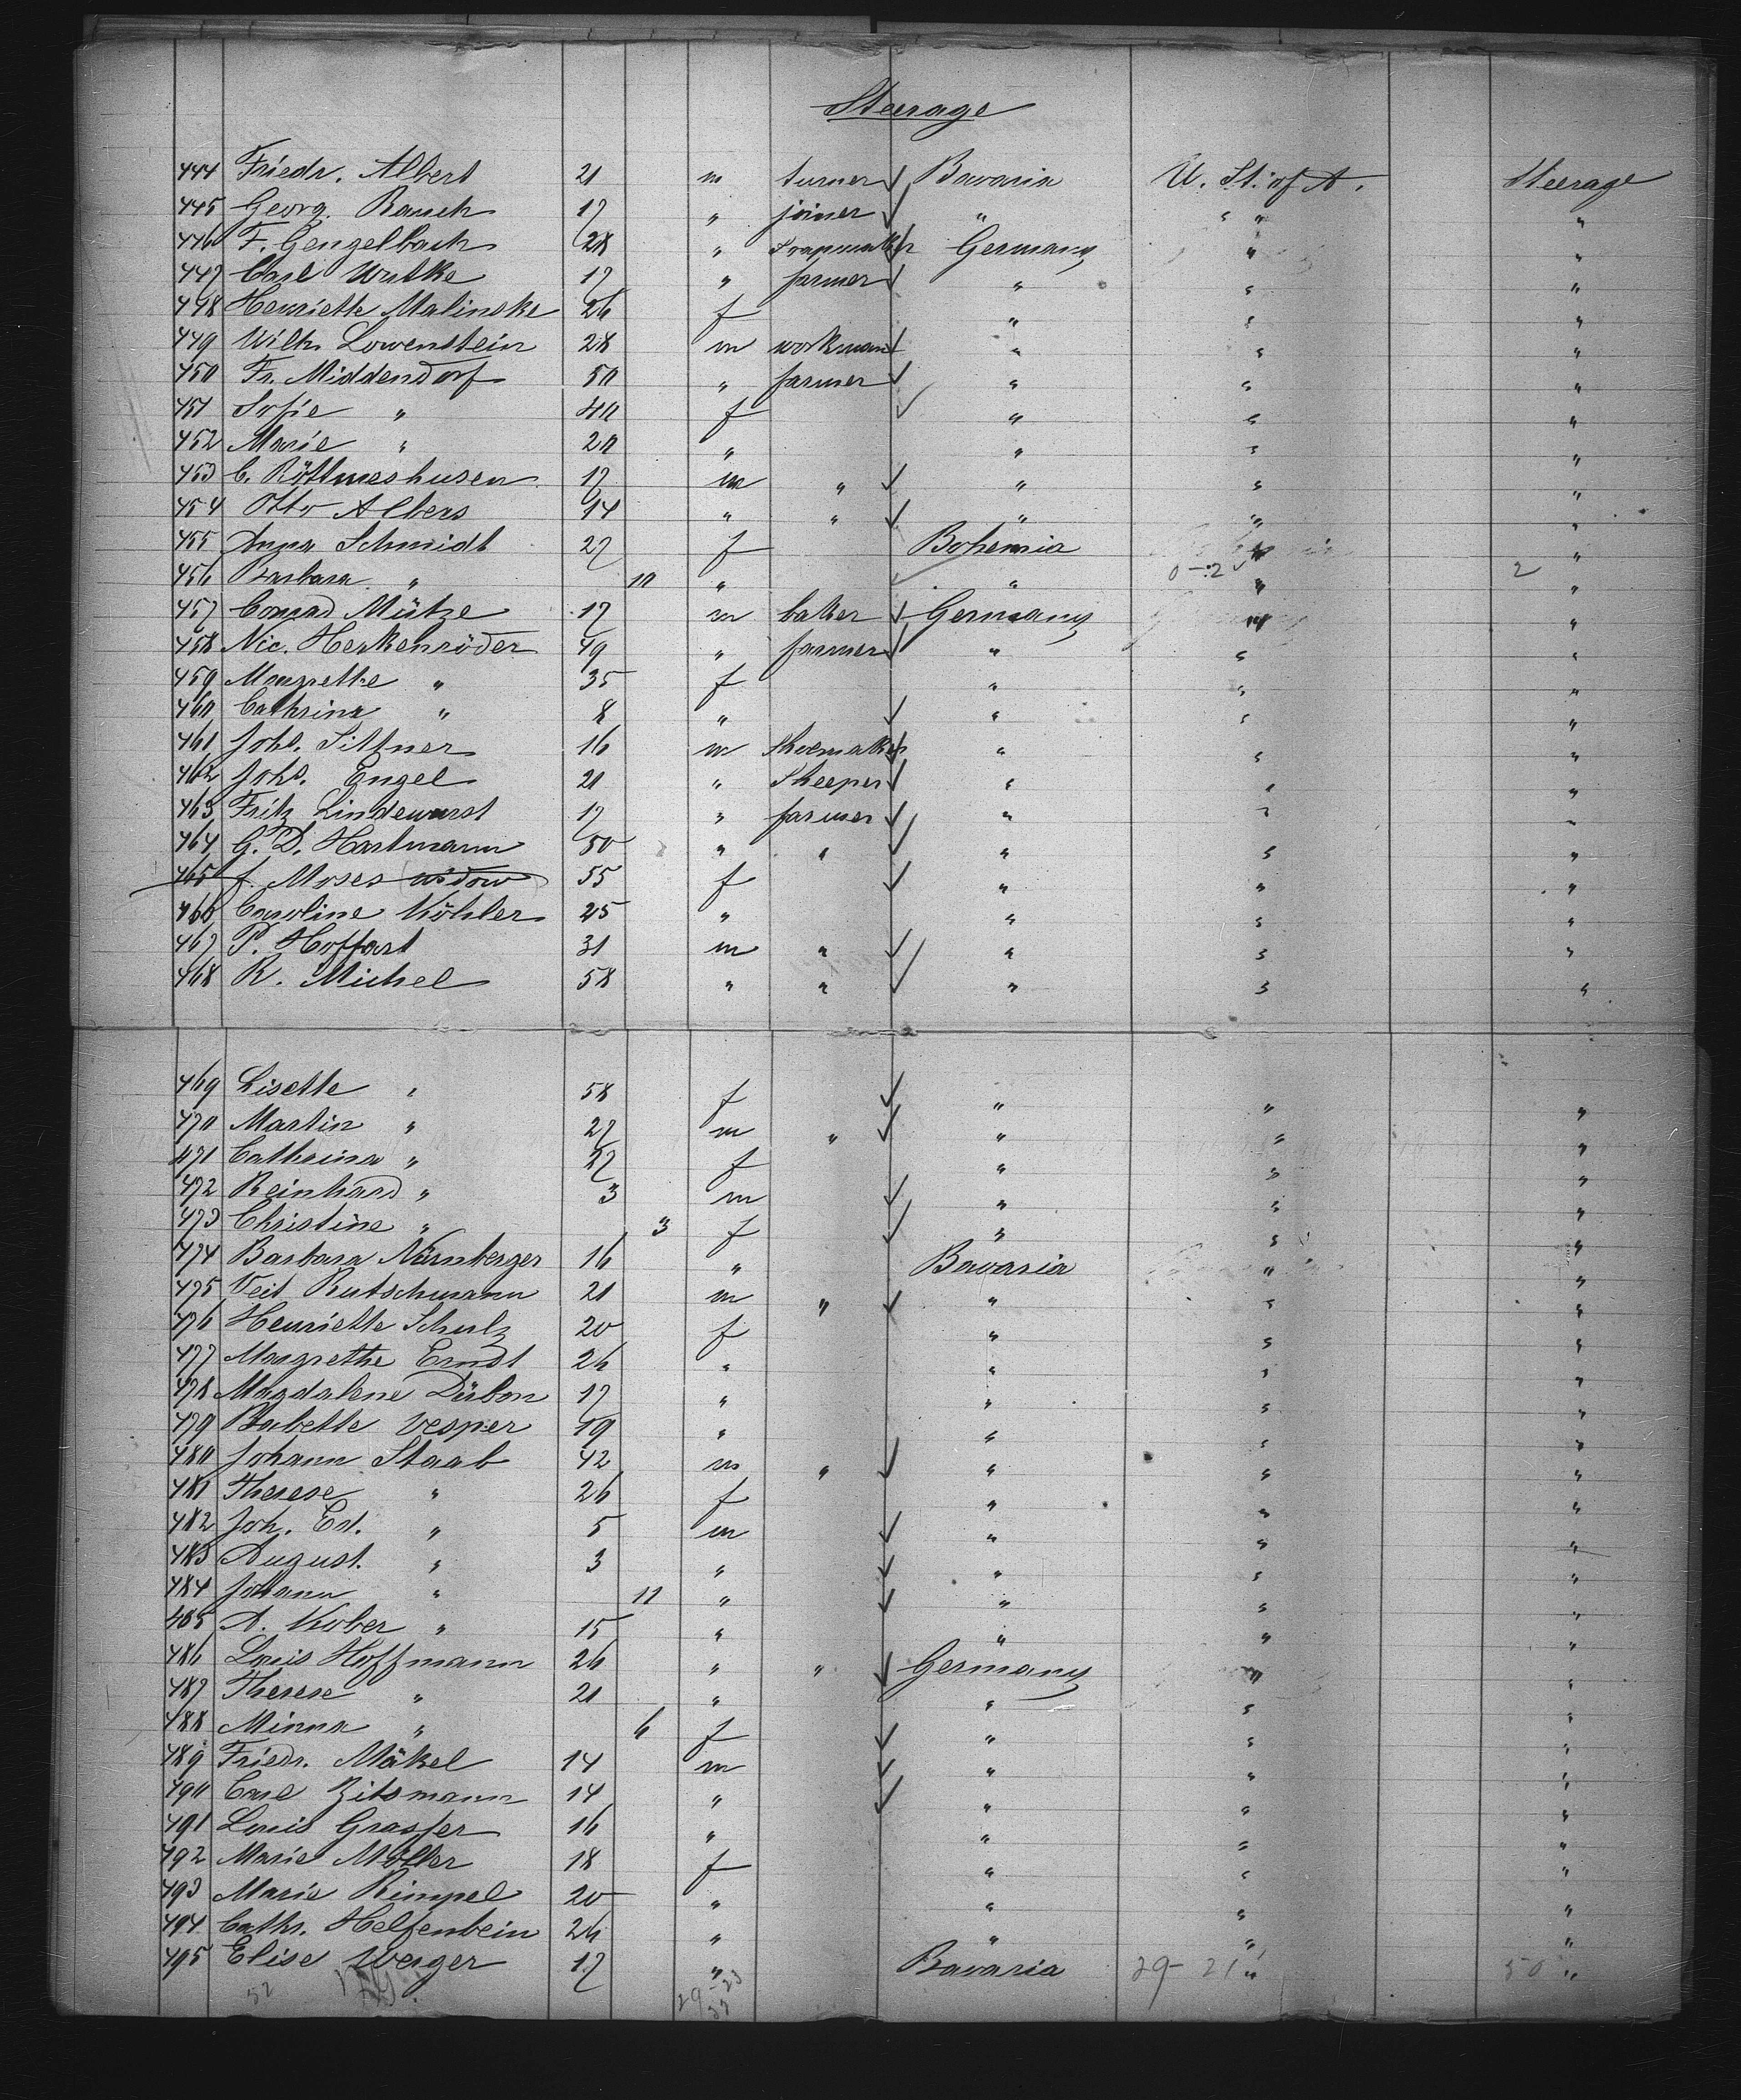 Steerage
444 Friedr. Albert 21 m turner ✓ Bavaria U. St. of A. Steerage
445 Georg. Rausch 17 " joiner ✓ " " "
446 F. Gengelbach 28 " Soapmaker Germany " "
447 Carl Wutke 17 " farmer ✓ " " "
448 Henriette Malinske 26 f " " "
449 Wilh. Lowenstein 28 m workman ✓ " " "
450 Fr. Middendorf 50 " farmer ✓ " " "
451 Sofie " 40 f ✓ " " "
452 Marie " 20 " " " "
453 C. Röttmeshusen 17 m " ✓ " " "
454 Otto Albers 14 " " ✓ " " "
455 Anna Schmidt 27 f Bohemia " "
456 Barbara " 10 " ✓ " 0-2 ✓ " 2 "
457 Conrad Mütze 17 m baker ✓ Germany " "
458 Nic. Herkenröder 49 " farmer ✓ " " "
459 Margrethe " 35 f " " "
460 Cathrina " 8 " ✓ " " "
461 Johs. Sittner 16 m Shoemaker ✓ " " "
462 Johs. Engel 21 " Sheeper ✓ " " "
463 Fritz Lindewurst 17 " farmer ✓ " " "
464 G. D. Hartmann 50 " " ✓ " " "
465 f. Moses widow 55 f ✓ " " "
466 Caroline Köhler 25 " " " "
467 P. Hoffart 31 m " ✓ " " "
468 R. Michel 58 " " ✓ " " "
469 Lisette " 58 f ✓ " " "
470 Martin " 27 m " ✓ " " "
471 Catheina " 27 f " " "
472 Reinhard " 3 m ✓ " " "
473 Christine " 3 f ✓ " " "
474 Barbara Nürnberger 16 " Bavaria " "
475 Veit Rutschmann 21 m " ✓ " " "
476 Henriette Schulz 20 f " " "
477 Margrethe Erndt 26 " " " "
478 Magdalene Dübon 17 " " " "
479 Babette Vesper 19 " " " "
480 Johann Staab 42 m " ✓ " " "
481 Therese " 26 f " " "
482 Joh. Ed. " 5 m ✓ " " "
483 August. " 3 " ✓ " " "
484 Johann " 11 " ✓ " " "
485 A. Kober " 15 " " " "
486 Louis Hoffmann 26 " " ✓ Germany " "
487 Therese " 21 " " " "
488 Minna " 6 f ✓ " " "
489 Friedr. Mäkel 14 m ✓ " " "
490 Carl Zitsmann 14 " ✓ " " "
491 Louis Grasser 16 " " " "
492 Marie Möller 18 f " " "
493 Marie Rimpel 20 " " " "
494 Cathr. Helfenbein 26 " " " "
495 Elise Werger 17 " Bavaria 29-21 " 50 "
52 29-23